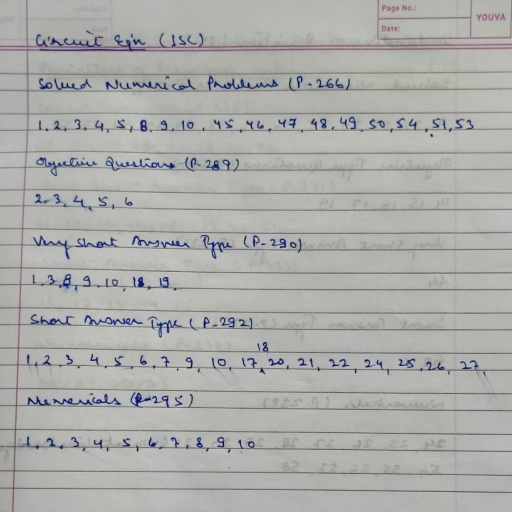 Page No.:
Date:
YOUVA
Circuit Eqn (ISC)
Solved Numerical Problems (P-266)
1, 2, 3, 4, 5, 8, 9, 10, 45, 46, 47, 48, 49, 50, 54, 51, 53
Objective Questions (P-289)
2, 3, 4, 5, 6
Very Short Answer Type (P-290)
1, 3, 8, 9, 10, 18, 19.
Short Answer Type (P-292)
18
1, 2, 3, 4, 5, 6, 7, 9, 10, 17, 20, 21, 22, 24, 25, 26, 27,
Numericals (P-295)
1, 2, 3, 4, 5, 6, 7, 8, 9, 10